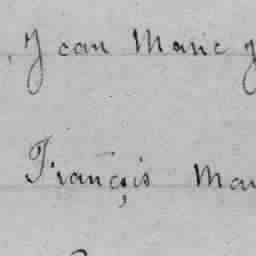 , Jean Marie
François Mar